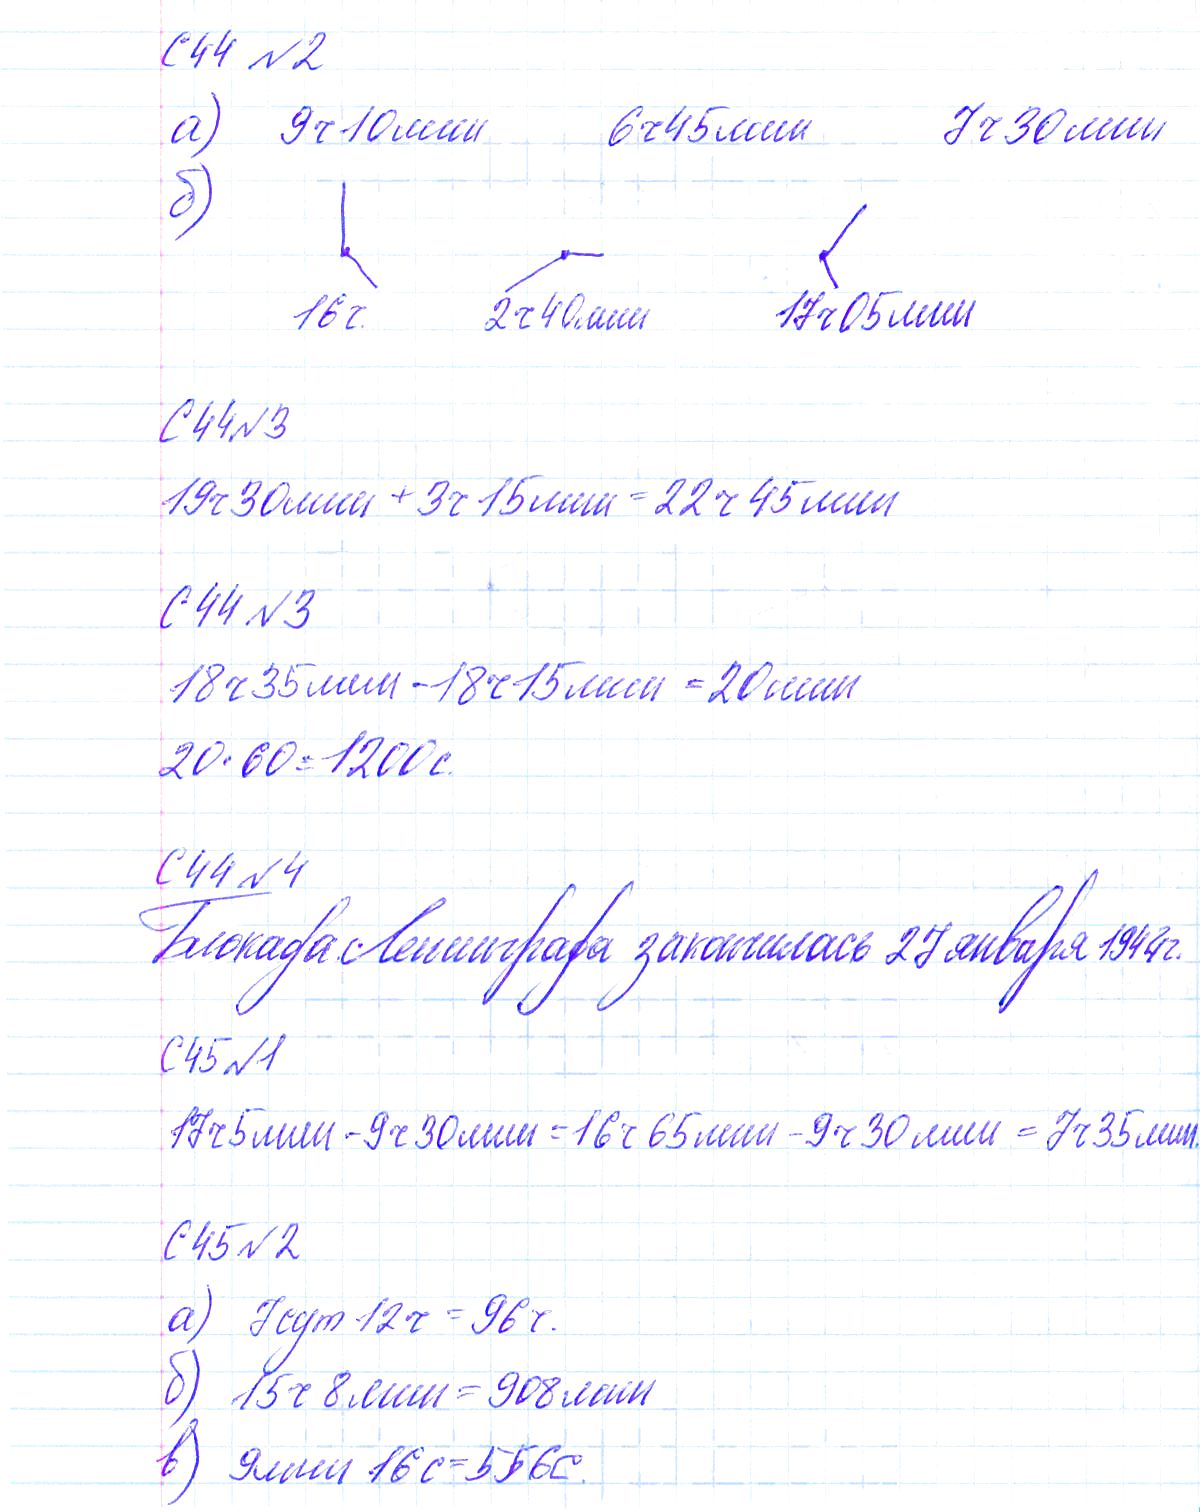 С44 №2
а) 9ч10мин 6ч45мин 7ч30мин
б)
16ч. 2ч40мин 17ч05мин
С44№3
19ч30мин + 3ч15мин = 22ч45мин
С44 №3
18ч35мин - 18ч15мин = 20мин
20·60=1200с.
С44 №4
Блокада Ленинграда закончилась 27 января 1944г.
С45№1
17ч5мин - 9ч30мин = 16ч65мин - 9ч30мин = 7ч35мин.
С45№2
а) 7сут 12ч = 96ч.
б) 15ч 8мин = 908мин
в) 9мин 16с = 556с.